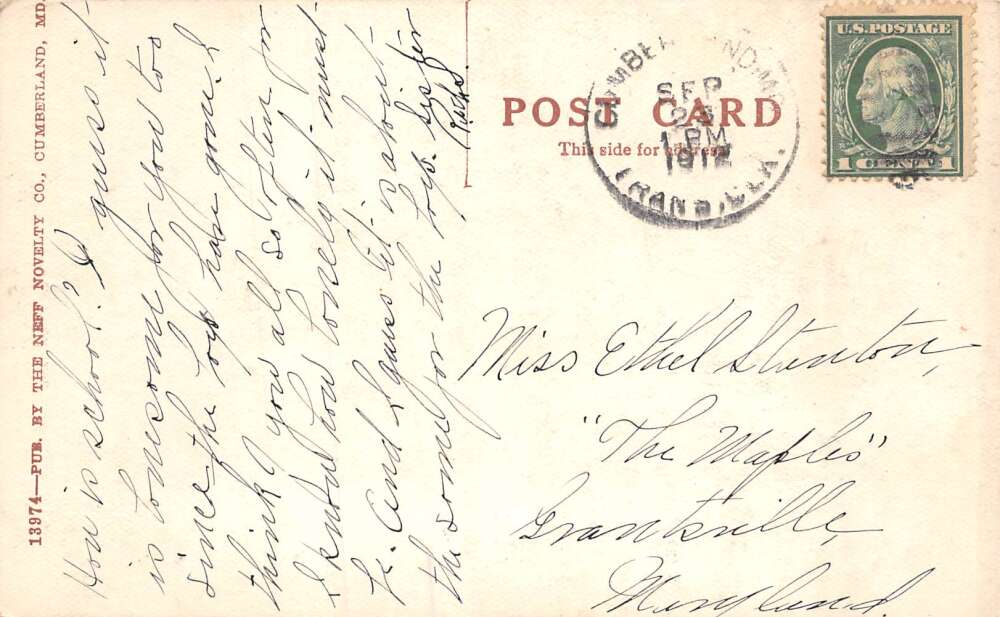 13974—PUB. BY THE NEFF NOVELTY CO., CUMBERLAND, MD.
How is school? I guess it
is lonesome for you too
since the boys has gone. I
think of you all so often for
I know how lonely it must
be. And I guess it is about
the same for the boys. Sister
POST CARD
This side for address
CUMBERLAND, MD.
SEP
23
1 PM
1912
TRANS. CLK.
U.S. POSTAGE
1 CENT 1
Miss Ethel Stanton,
"The Maples"
Grantsville,
Maryland.